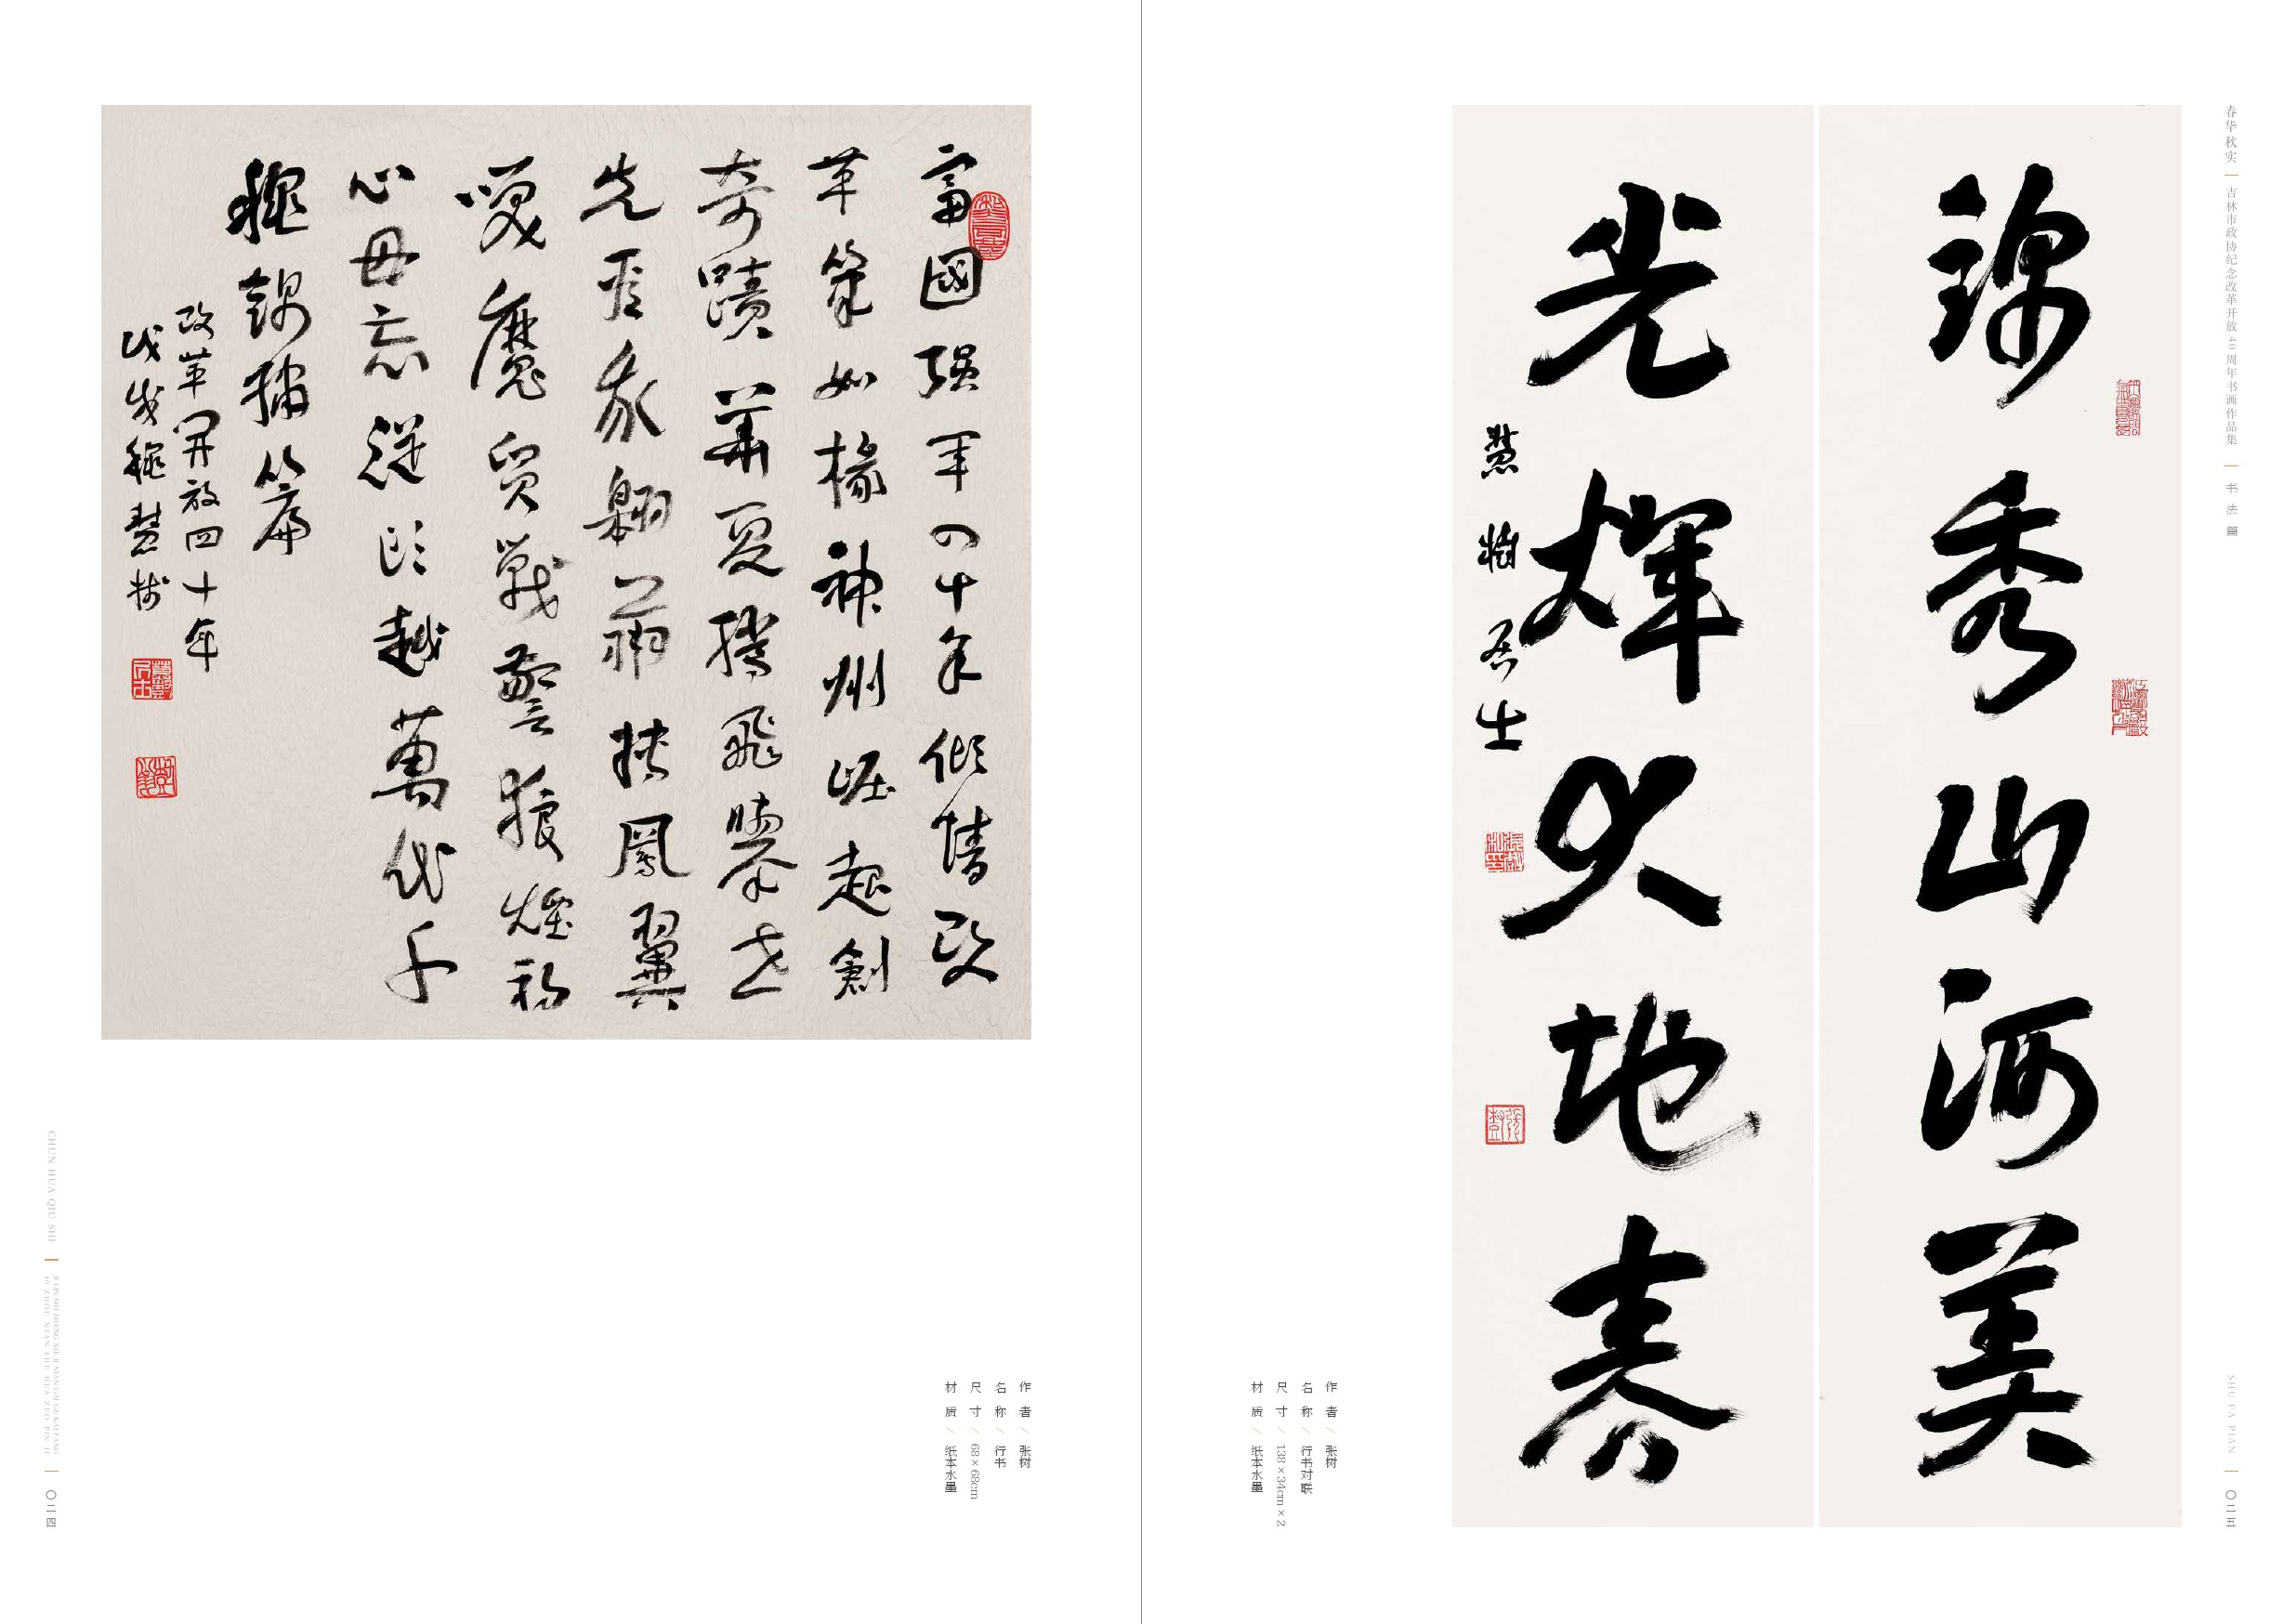 春华秋实
吉林市政协纪念改革开放40周年书画作品集
书法篇
錦秀山河美
光輝大地春
慧樹居士
作者／张树
名称／行书对联
尺寸／138×34cm×2
材质／纸本水墨
SHU FA PIAN
〇二五
富國强軍四十年傾情改
革筆如椽神州崛起創
奇蹟華夏騰飛世
先我翱翔鳳翼
魔貿戰警狼煙初
心毋忘從頭越萬代千
穐錦繡篇
改革開放四十年
戊戌穐慧樹
作者／张树
名称／行书
尺寸／68×68cm
材质／纸本水墨
CHUN HUA QIU SHI
JI LIN SHI ZHENG XIE JI NIAN GAI GE KAI FANG
40 ZHOU NIAN SHU HUA ZUO PIN JI
〇二四